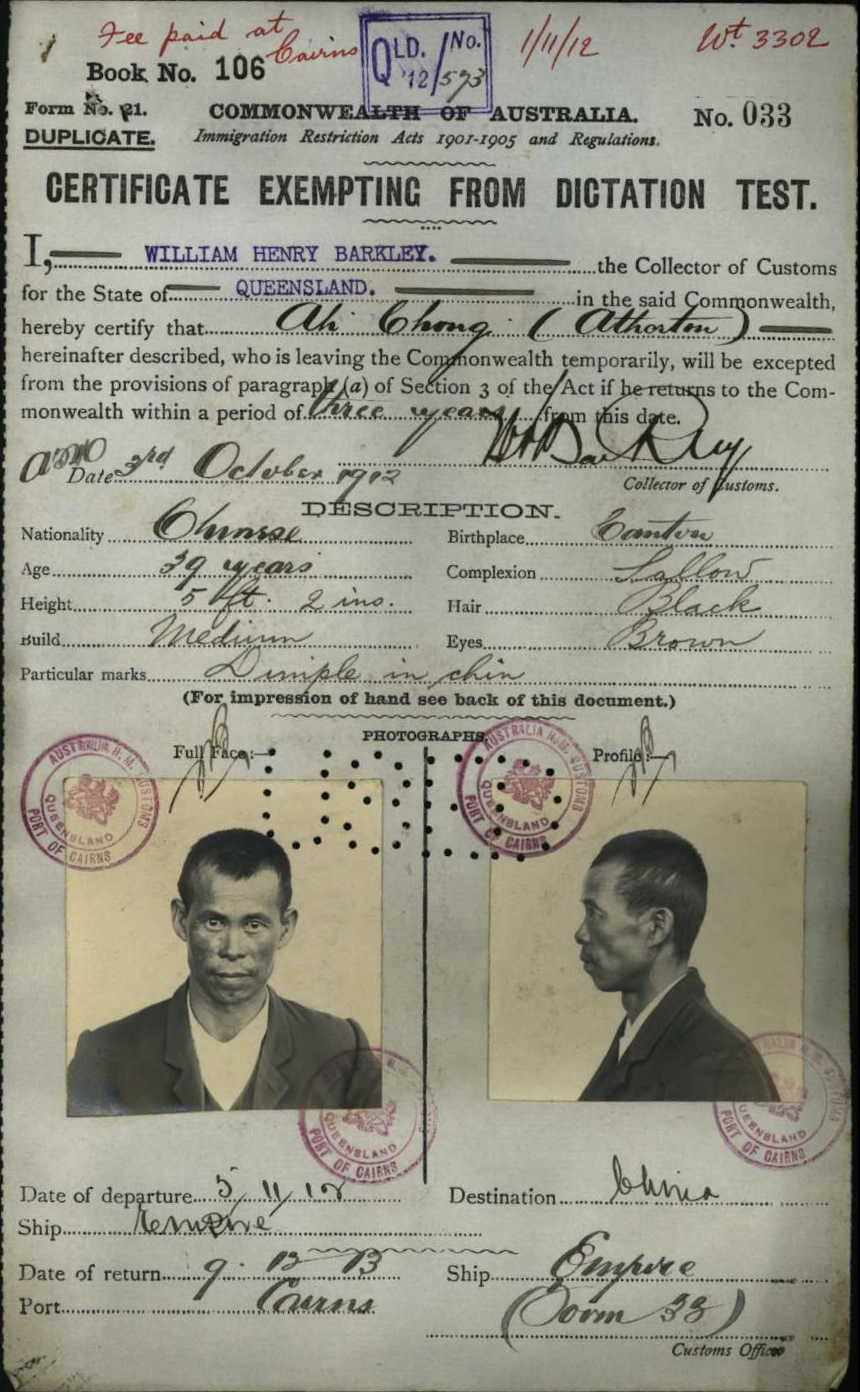 Fee paid at Cairns
QLD. No. 12/573
1/11/12
Wt 3302
Book No. 106
Form No. 21.
COMMONWEALTH OF AUSTRALIA.
No. 033
DUPLICATE.
Immigration Restriction Acts 1901-1905 and Regulations.
CERTIFICATE EXEMPTING FROM DICTATION TEST.
I, WILLIAM HENRY BARKLEY. the Collector of Customs
for the State of QUEENSLAND. in the said Commonwealth,
hereby certify that Ah Chong (Atherton)
hereinafter described, who is leaving the Commonwealth temporarily, will be excepted
from the provisions of paragraph (a) of Section 3 of the Act if he returns to the Com-
monwealth within a period of three years from this date.
WH Barkley
Date 3rd October 1912
Collector of Customs.
DESCRIPTION.
Nationality Chinese Birthplace Canton
Age 39 years Complexion Sallow
Height 5 ft. 2 ins. Hair Black
Build Medium Eyes Brown
Particular marks Dimple in chin
(For impression of hand see back of this document.)
PHOTOGRAPHS.
Full Face:— Profile:—
AUSTRALIA H.M. CUSTOMS QUEENSLAND PORT OF CAIRNS
AUSTRALIA H.M. CUSTOMS QUEENSLAND PORT OF CAIRNS
QUEENSLAND PORT OF CAIRNS
AUSTRALIA H.M. CUSTOMS QUEENSLAND PORT OF CAIRNS
Date of departure 5/11/12 Destination China
Ship Empire
Date of return 9. 12 13 Ship Empire
Port Cairns (Form 32)
Customs Officer